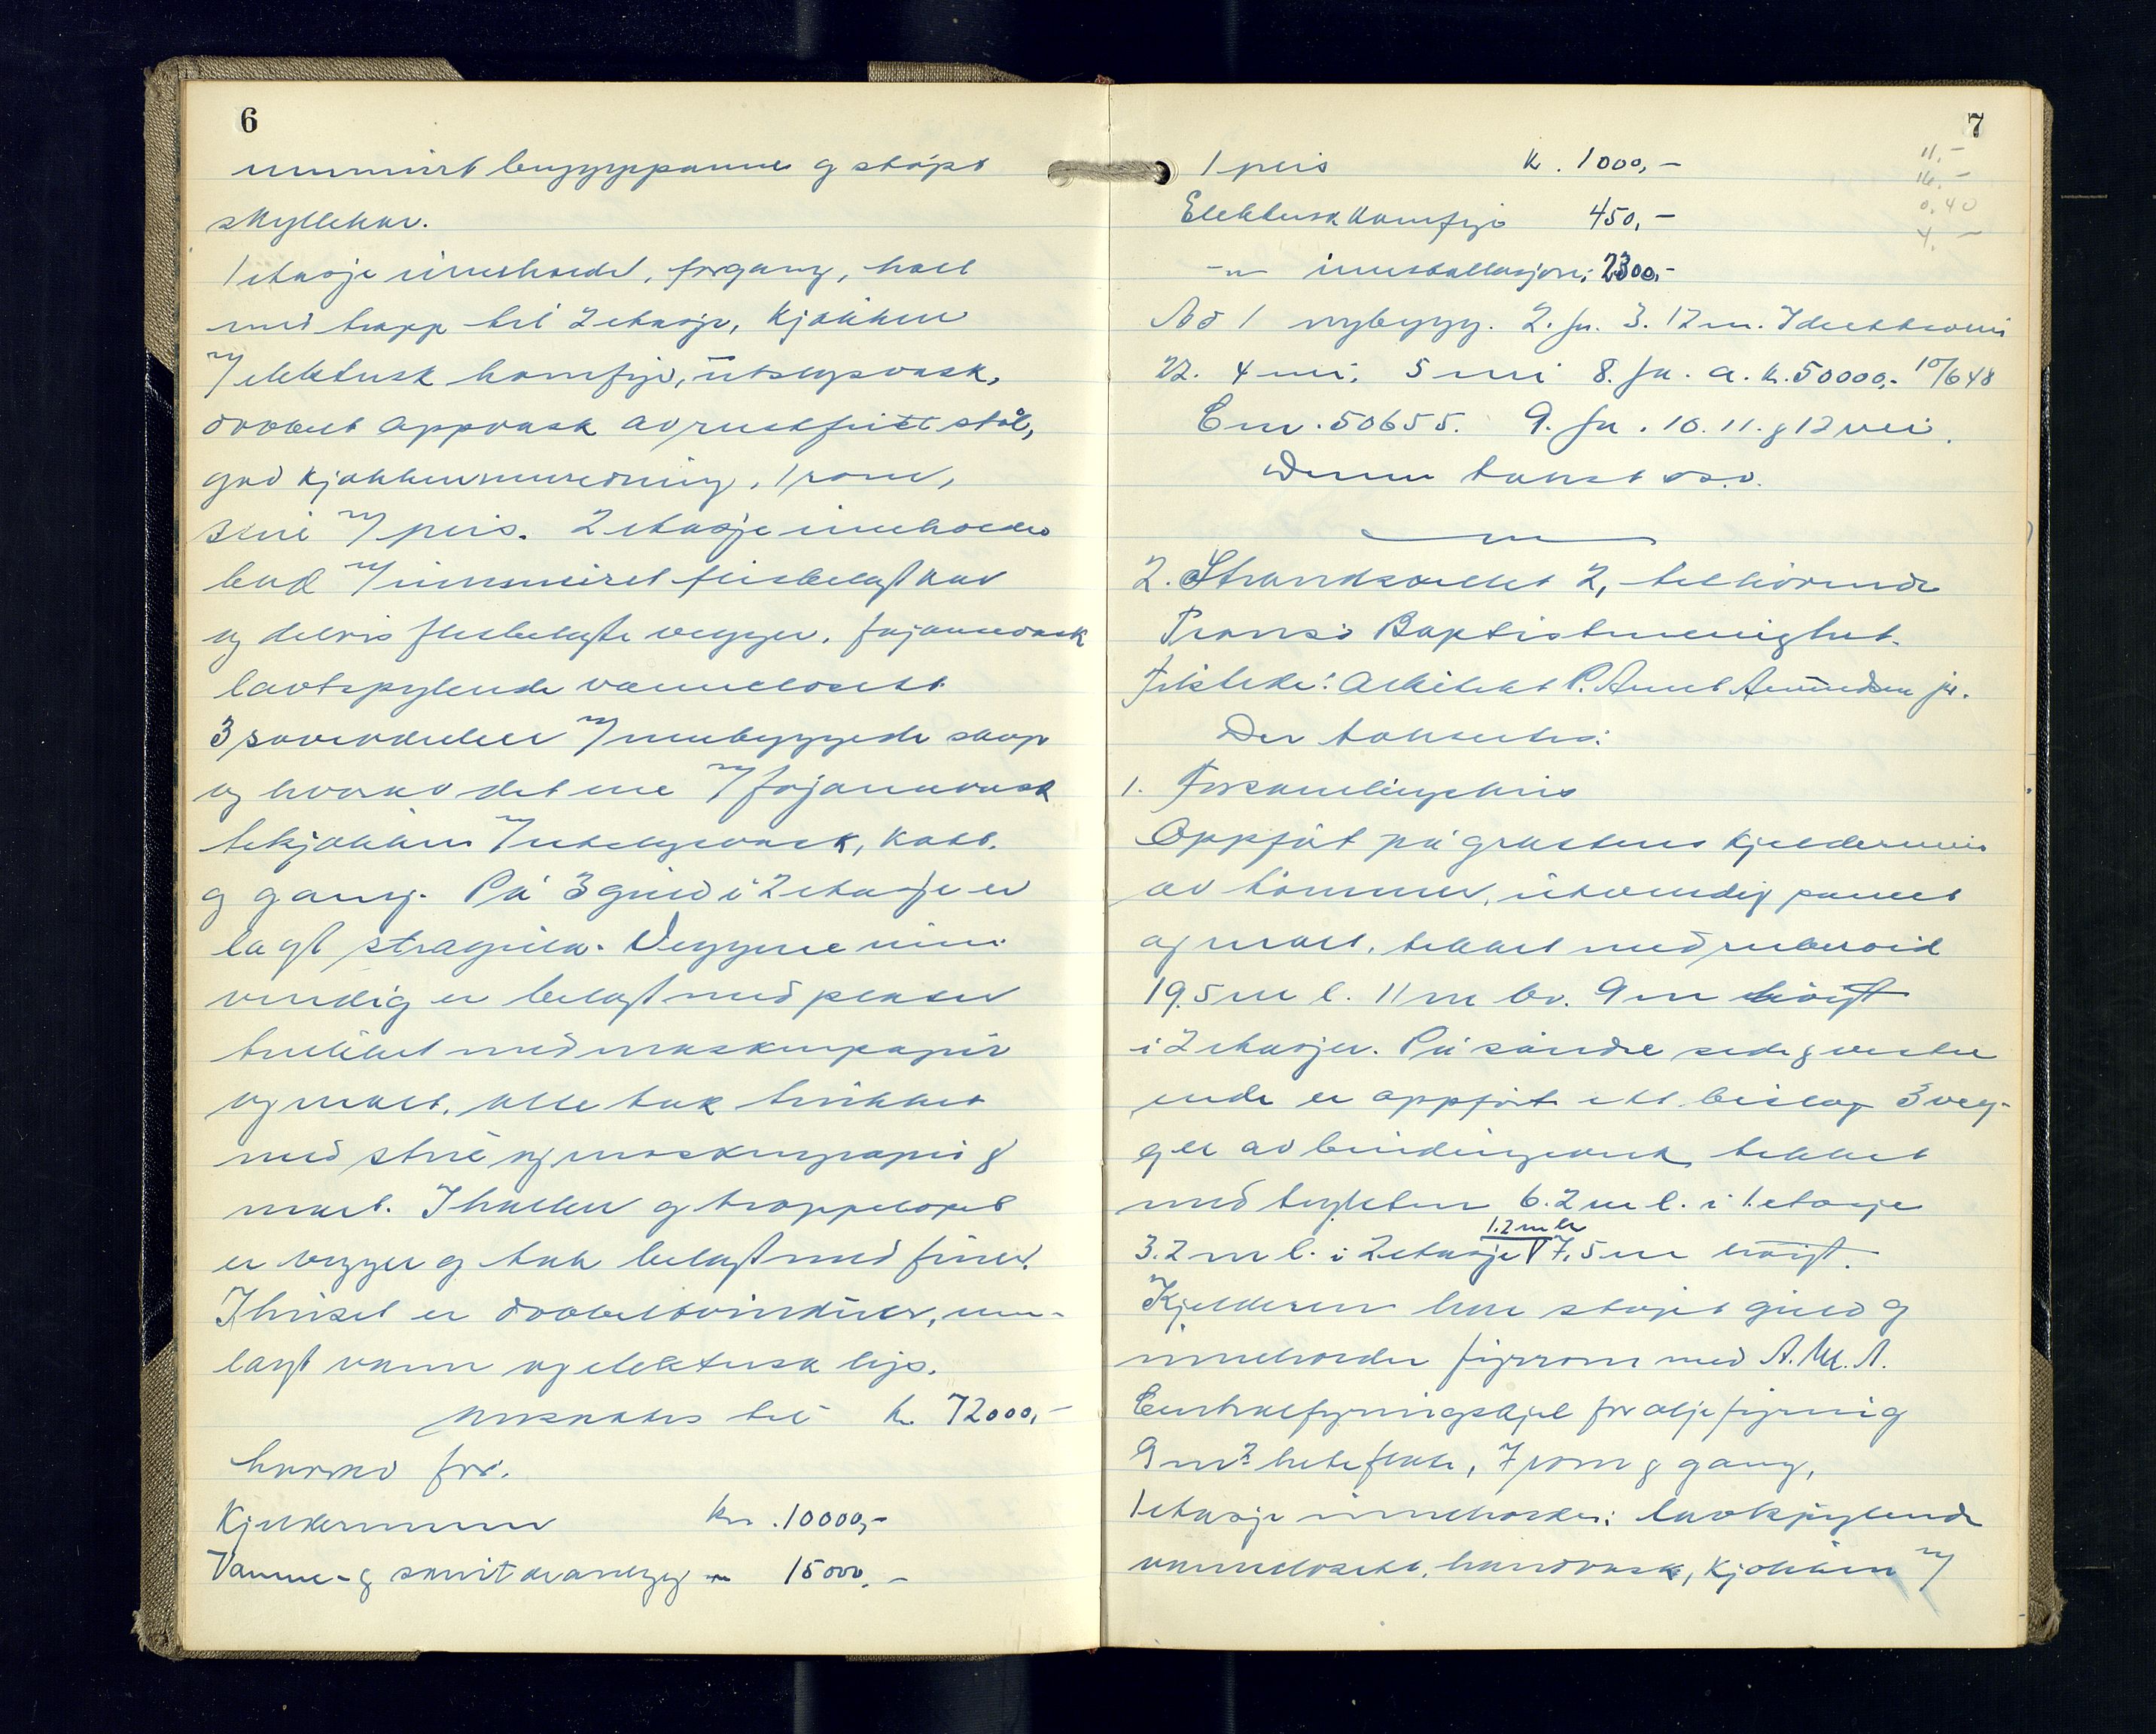 6
innmurt bryggepanne og støpt
skyllekar.
1 etasje inneholder, forgang, hall
med trapp til 2 etasje, kjøkken
m/ elektrisk komfyr, utslagsvask,
dobbelt oppvask av rustfritt stål,
god kjøkkeninnredning, 1 rom,
stue m/ peis. 2 etasje inneholder
bad m/ innmuret flisbelagt kar
og delvis flisbelagte vegger, fajansevask
lavtspylende vannclosett
3 soverom m/ innebyggede skap
og hvorav det ene m/ fajansevask
tekjøkken m/ utslagsvask, kott.
og gang. På 3 gulv i 2 etasje er
lagt stragula. Veggene inn-
vendig er belagt med plater
trukket med maskinpapir
og malt, alle tak trukket
med strie og maskinpapir &
malt. I hallen og trappeløpet
er vegger og tak belagt med finer.
I huset er dobbeltvinduer, inn-
lagt vann og elektrisk lys.
verdsattes til kr. 72000,-
hvorav for.
Kjeldermuren kr. 10000,-
Vann- & sanitæranlegg -"- 15000,-
7
11,-
16,-
0,40
4,-
1 peis k. 1000,-
Elektrisk komfyr 450,-
-"- installasjon: 2300,-
No 1 nybygg. 2. fu. 3. 12 m.
22. 4 nei. 5 nei 8. fu. a. kr. 50000,- 10/6 48
Em. 50655. 9. fu. 10. 11. & 12 nei.
Denne takst o.s.v.
2. Strandskillet 2, tilhørende
Tromsø Baptistmenighet.
Tilstede: Arkitekt P. Arnet Amundsen jr.
Der takseres:
1. Forsamlingshus
Oppført på gråstens kjeldermur
av tømmer, utvendig panelt
og malt, tekket med ruberoid
19,5 m l. 11 m br. 9 m høigt
i 2 etasjer. På søndre side & vestre
ende er oppført ett bislag 3 veg-
ger av bindingsverk, tekket
med tegelsten 6.2 m l. i 1. etasje
3.2 m l. i 2 etasje 1.2 m br 7,5 m høigt.
Kjelderen har støpt gulv og
inneholder fyrrom med A.M.A.
Centralfyringskjel for oljefyring
9 m² heteflate, 7 rom & gang,
1 etasje inneholder: lavtspylende
vannclosett, håndvask, kjøkken m/